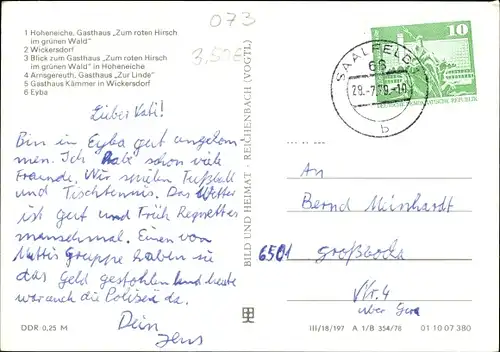 1 Hoheneiche, Gasthaus „Zum roten Hirsch
im grünen Wald"
2 Wickersdorf
3 Blick zum Gasthaus „Zum roten Hirsch
im grünen Wald" in Hoheneiche
4 Arnsgereuth, Gasthaus „Zur Linde"
5 Gasthaus Kämmer in Wickersdorf
6 Eyba
073
Lieber Vati!
Bin in Eyba gut angekom
men. Ich habe schon viele
Freunde. Wir spielen Fußball
und Tischtennis. Das Wetter
ist gut und Früh Regnet es
manschmal. Einen von
Gruppe haben sie
das Geld gestohlen und heute
war auch die Polizei da.
Dein
Jens
DDR 0,25 M
BILD UND HEIMAT · REICHENBACH (VOGTL)
SAALFELD
68
b
10
DEUTSCHE DEMOKRATISCHE REPUBLIK
An
Bernd Meinhardt
6501 Großboda
Nr. 4
über Gera
III/18/197 A 1/B 354/78 01 10 07 380